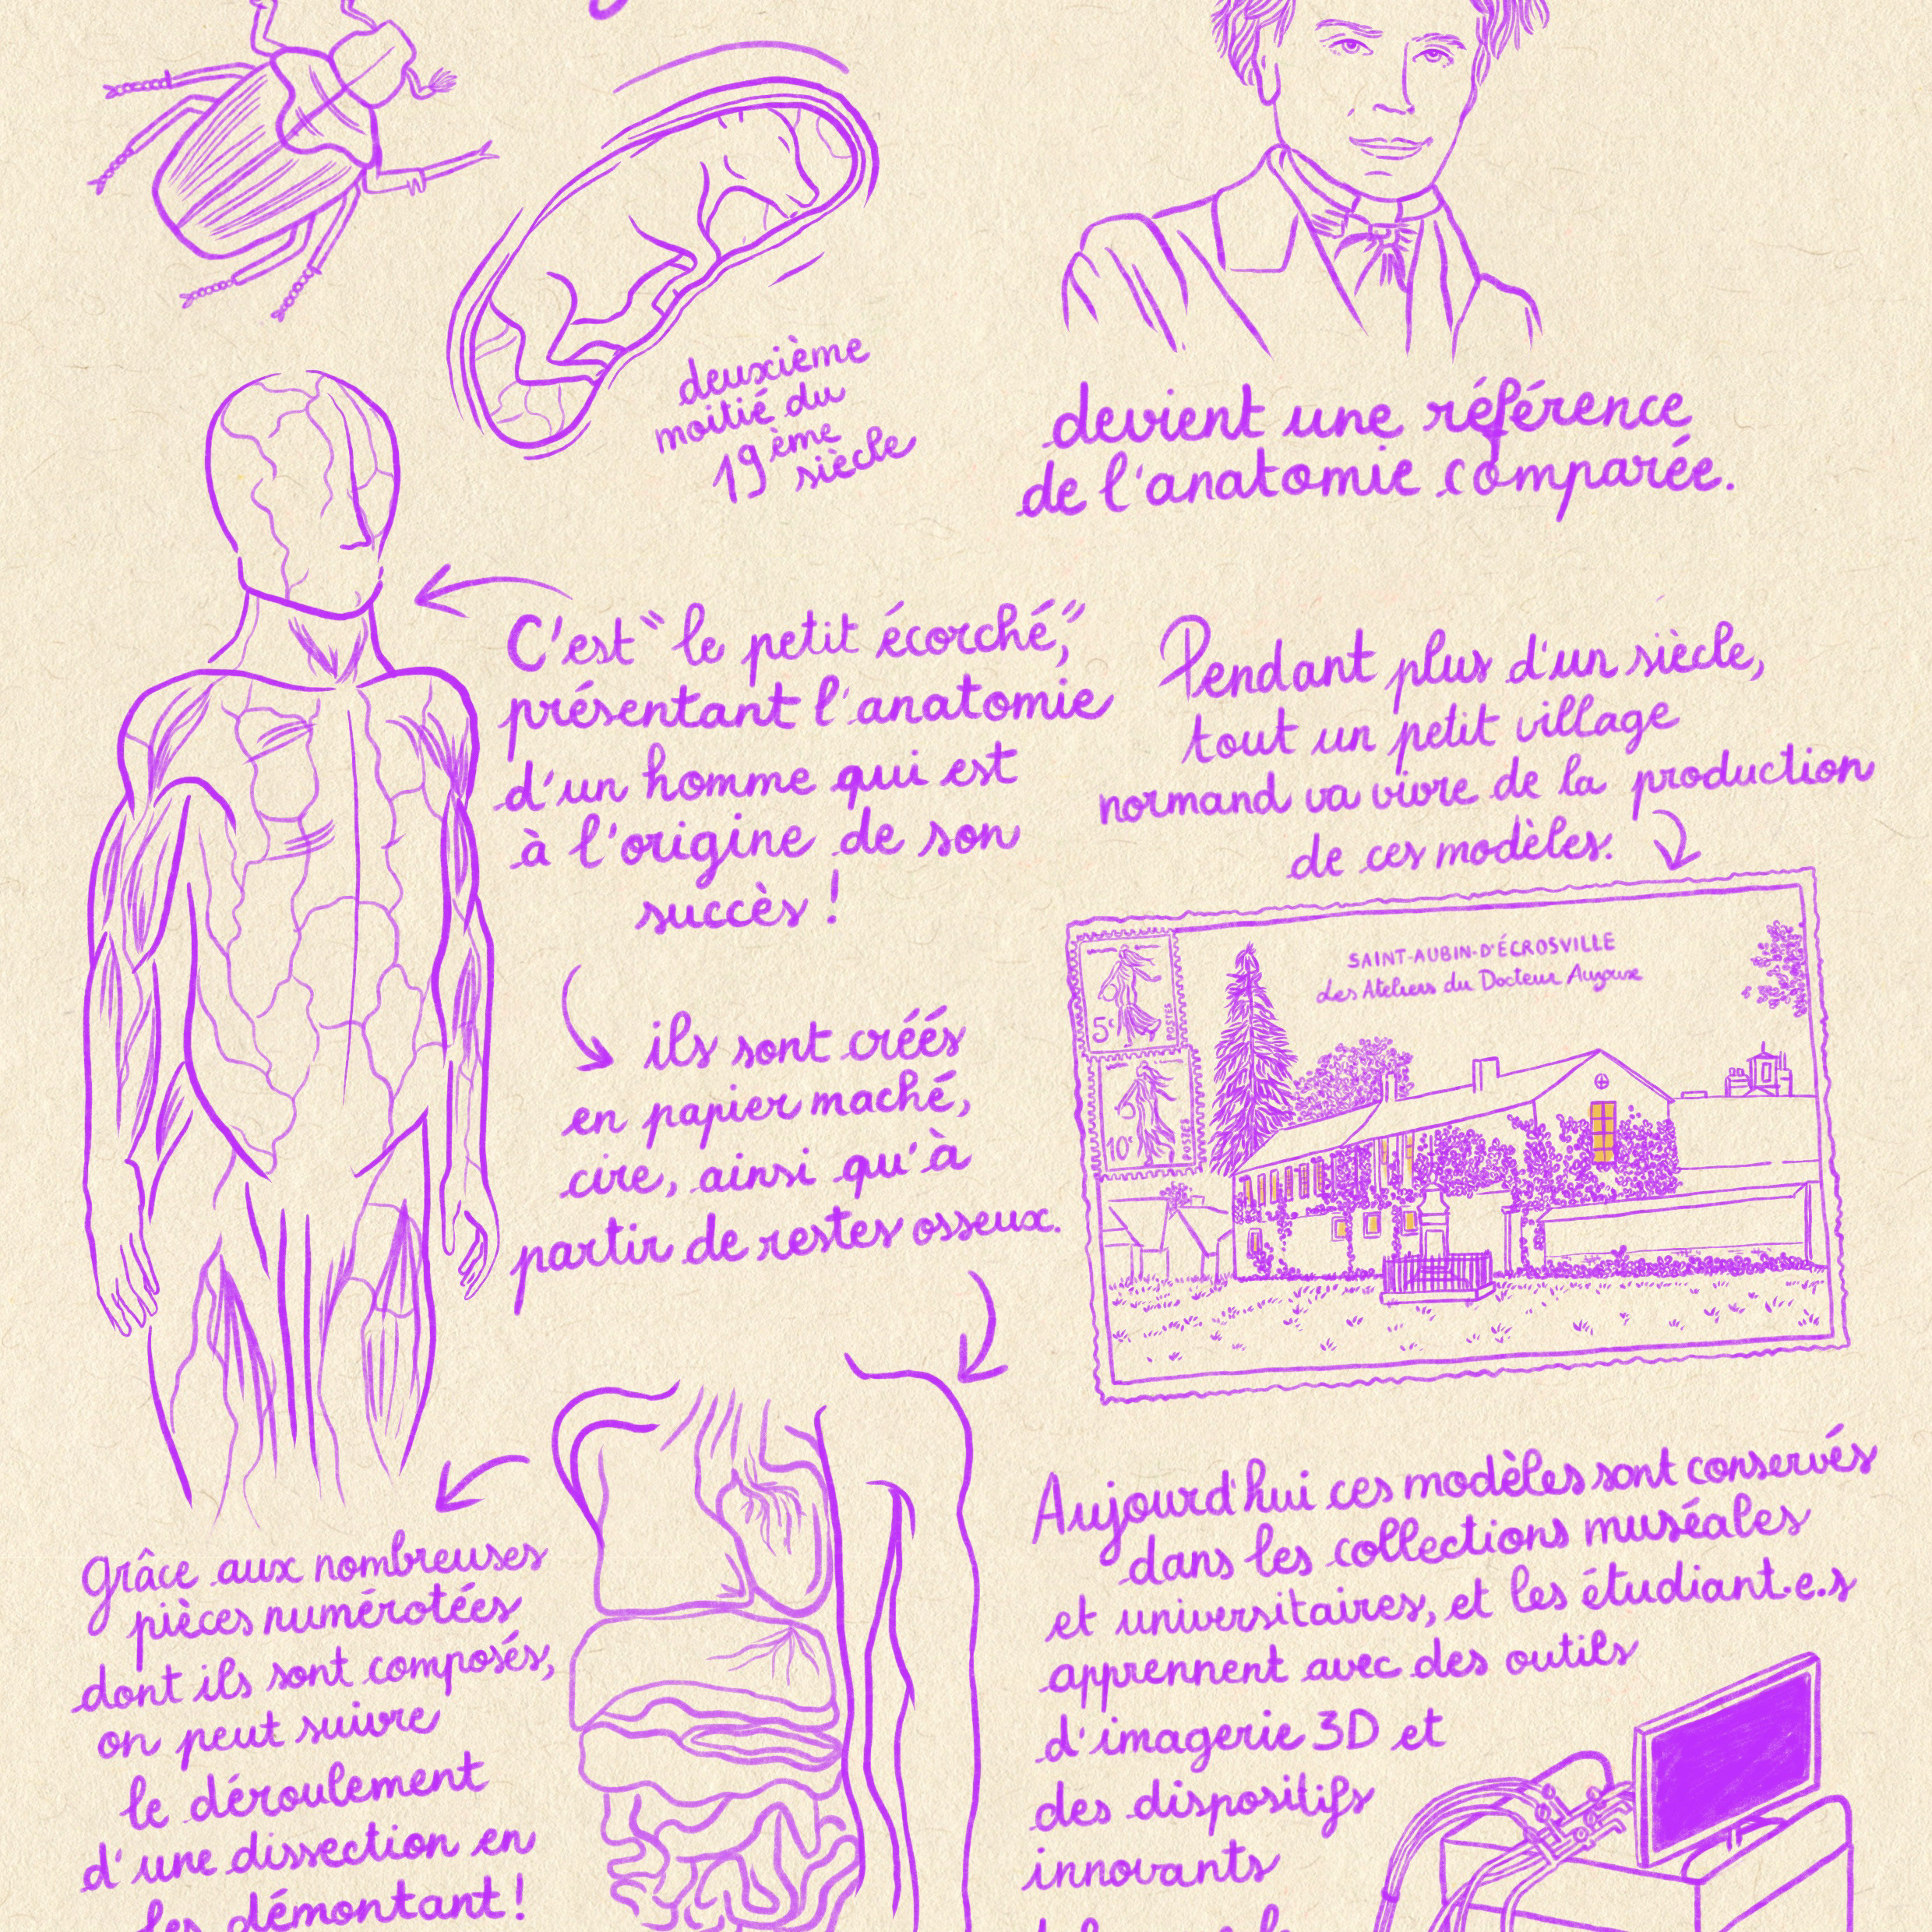 deuxième
moitié du
19ème
siècle
devient une référence
de l'anatomie comparée.
C'est "le petit écorché",
présentant l'anatomie
d'un homme qui est
à l'origine de son
succès !
ils sont créés
en papier maché,
cire, ainsi qu'à
partir de restes osseux.
Grâce aux nombreuses
pièces numérotées
dont ils sont composés,
on peut suivre
le déroulement
d'une dissection en
les démontant !
Pendant plus d'un siècle,
tout un petit village
normand va vivre de la production
de ces modèles.
SAINT-AUBIN-D'ÉCROSVILLE
Les Ateliers du Docteur Auzoux
5c
POSTES
10c
POSTES
Aujourd'hui ces modèles sont conservés
dans les collections muséales
et universitaires, et les étudiant.e.s
apprennent avec des outils
d'imagerie 3D et
des dispositifs
innovants